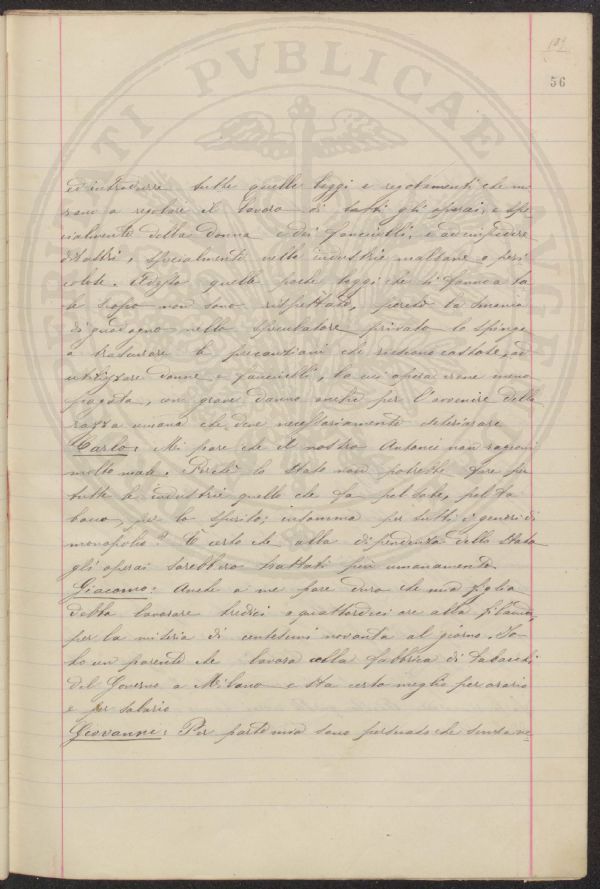 187
56
ed introdurre tutte quelle leggi e regolamenti che mi
rano a regolare il lavoro di tutti gli operai, e spe
cialmente della donna e dei fanciulli, e ad impedire
specialmente nelle industrie malsane o peri
colose. Adesso quelle poche leggi che si fanno a ta
le scopo non sono rispettate, perchè la smania
di guadagno nello speculatore privato lo spinge
a trascurare le precauzioni che riescono costose, ad
utilizzare donne e fanciulli, la cui opera viene meno
pagata, con grave danno anche per l'avvenire della
razza umana che deve necessariamente deteriorare
Carlo: Mi pare che il nostro Antonio non ragioni
molto male. Perchè lo Stato non potrebbe fare per
tutte le industrie quello che fa pel sale, pel ta
bacco, per lo spirito; insomma per tutti i generi di
monopolio? È certo che alla dipendenza dello Stato
gli operai sarebbero trattati più umanamente
Giacomo: Anche a me pare duro che mia figlia
debba lavorare tredici o quattordici ore alla filanda
per la miseria di centesimi novanta al giorno. Io
ho un parente che lavora alla fabbrica di tabacchi
del Governo a Milano e sta certo meglio per orario
e per salario
Giovanni: Per parte mia sono persuaso che senza ve